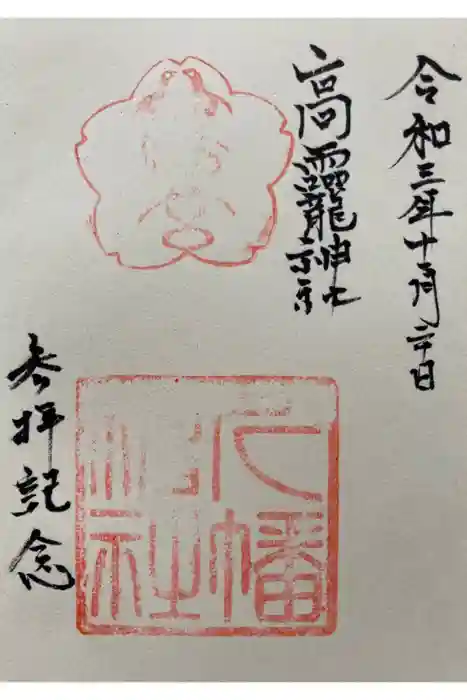 令和三年十一月三日
高龗神社
参拝記念
八幡神社